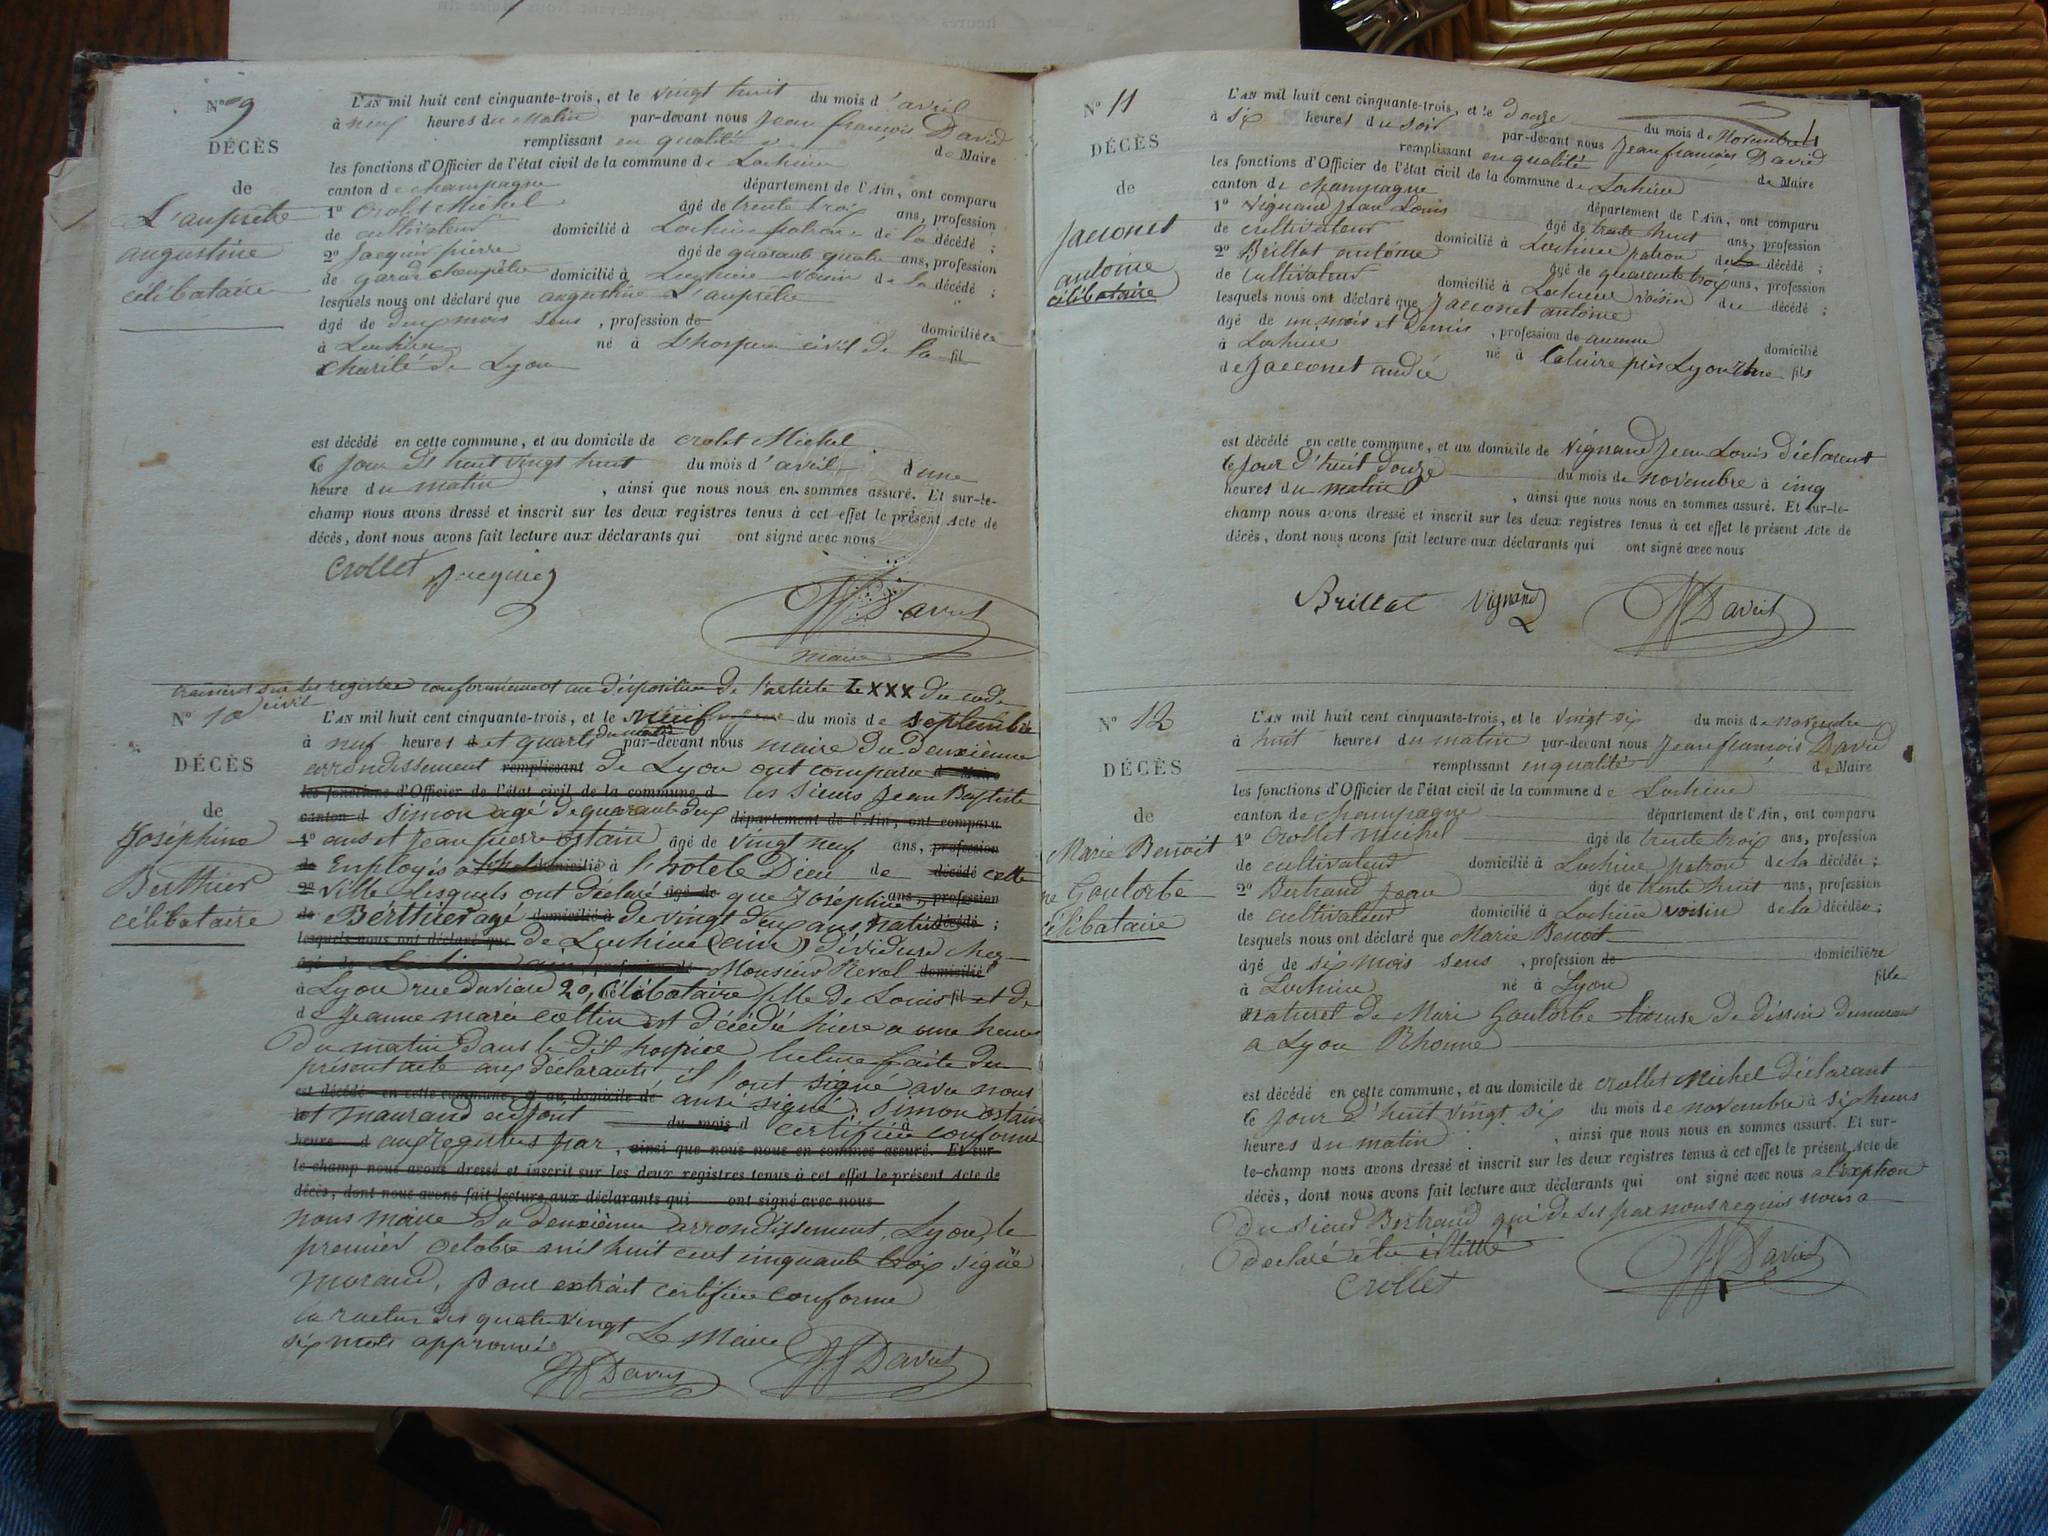 N° 9
DÉCÈS
de
L'auprêtre
augustine
célibataire
L'AN mil huit cent cinquante-trois, et le vingt huit du mois d'avril
à neuf heures du Matin par-devant nous Jean françois David
remplissant en qualité de Maire
les fonctions d'Officier de l'état civil de la commune de Lochieu
canton de champagne département de l'Ain, ont comparu
1° Crolet Michel âgé de trente trois ans, profession
de cultivateur domicilié à Lochieu patron de la décédé ;
2° Jacquier pierre âgé de quarante quatre ans, profession
de garde champêtre domicilié à Lochieu voisin de la décédé ;
lesquels nous ont déclaré que augustine L'auprêtre
âgé de deux mois sens , profession de domicilié
à Lochieu né à L'hospice civil de la fil
charité de Lyon
est décédé en cette commune, et au domicile de Crolet Michel
ce jour d'huit vingt huit du mois d'avril d'une
heure du matin , ainsi que nous nous en sommes assuré. Et sur-le-
champ nous avons dressé et inscrit sur les deux registres tenus à cet effet le présent Acte de
décès, dont nous avons fait lecture aux déclarants qui ont signé avec nous
Crollet Jacquier
JfDavid
maire
transcrit sur les registre conformément au disposition de l'article LXXX du code
civil
N° 10
DÉCÈS
de
Joséphine
Berthier
célibataire
L'AN mil huit cent cinquante-trois, et le neuf du mois de septembre
à neuf heures et quarts du matin par-devant nous maire du deuxième
arrondissement remplissant de Lyon ont comparu de Maire
les fonctions d'Officier de l'état civil de la commune d les sieurs Jean Baptiste
canton d simon agé de quarante deux département de l'Ain, ont comparu
1° ans et Jean pierre ostain âgé de vingt neuf ans, profession
de Employés à domicilié à l'hotel Dieu de décédé cette
2° ville lesquels ont déclaré âgé de que Joséphine ans, profession
de Berthier agé domicilié à de vingt deux ans, native décédé ;
lesquels nous ont déclaré que de Lochieu (ain) dévideuse chez
Monsieur Revol domicilié
à Lyon rue 20, né célibataire fille de Louis fil et de
de Jeanne marie cottin est décédée hière a une heure
du matin dans le dit hospice lecture faite du
présent acte aux déclarants, il l'ont signé avec nous
est décédé en cette commune, et au domicile de ansi signé : simon ostain
et mauraud adjoint du mois d à certifiée conforme
heure d aux registres par , ainsi que nous nous en sommes assuré. Et sur-
le-champ nous avons dressé et inscrit sur les deux registres tenus à cet effet le présent Acte de
décès, dont nous avons fait lecture aux déclarants qui ont signé avec nous
nous maire du deuxième arrondissement, Lyon, le
premier Octobre mil huit cent cinquante trois signé
moraud, pour extrait certifiée conforme
la rature des quatre vingt Le Maire
six mots approuvée
JfDavid JfDavid
N° 11
DÉCÈS
de
Jacconet
antoine
célibataire
L'AN mil huit cent cinquante-trois, et le Douze du mois de Novembre
à six heures du soir par-devant nous Jean françois David
remplissant en qualité de Maire
les fonctions d'Officier de l'état civil de la commune de Lochieu
canton de champagne département de l'Ain, ont comparu
1° Vignand Jean Louis âgé de trente huit ans, profession
de cultivateur domicilié à Lochieu patron de décédé ;
2° Brillat antoine âgé de quarante trois ans, profession
de Cultivateur domicilié à Lochieu voisin du décédé ;
lesquels nous ont déclaré que Jacconet antoine
âgé de un mois et demis , profession de aucune domicilié
à Lochieu né à Caluire près Lyon Rhne fils
de Jacconet andré
est décédé en cette commune, et au domicile de Vignand Jean Louis déclarent
ce jour d'huit douze du mois de novembre à cinq
heures du matin , ainsi que nous nous en sommes assuré. Et sur-le-
champ nous avons dressé et inscrit sur les deux registres tenus à cet effet le présent Acte de
décès, dont nous avons fait lecture aux déclarants qui ont signé avec nous
Brillat Vignand JfDavid
N° 12
DÉCÈS
de
Marie Benoit
ne Goutorbe
célibataire
L'AN mil huit cent cinquante-trois, et le vingt six du mois de novembre
à huit heures du matin par-devant nous Jean françois David
remplissant en qualité de Maire
les fonctions d'Officier de l'état civil de la commune de Lochieu
canton de champagne département de l'Ain, ont comparu
1° Crollet Michel âgé de trente trois ans, profession
de cultivateur domicilié à Lochieu patron de la décédée ;
2° Bertrand Jean âgé de trente huit ans, profession
de cultivateur domicilié à Lochieu voisin de la décédée ;
lesquels nous ont déclaré que Marie Benoit
âgé de six mois sens , profession de domicilière
à Lochieu né à Lyon fille
naturel de Mari Goutorbe liseuse de dessin demeurant
a Lyon Rhonne
est décédé en cette commune, et au domicile de Crollet Michel déclarant
ce jour d'huit vingt six du mois de novembre à six heures
heures du matin , ainsi que nous nous en sommes assuré. Et sur-
le-champ nous avons dressé et inscrit sur les deux registres tenus à cet effet le présent Acte de
décès, dont nous avons fait lecture aux déclarants qui ont signé avec nous a l'exption
du sieur Bertrand qui de ses par nous requis nous a
declaré être
Crollet JfDavid